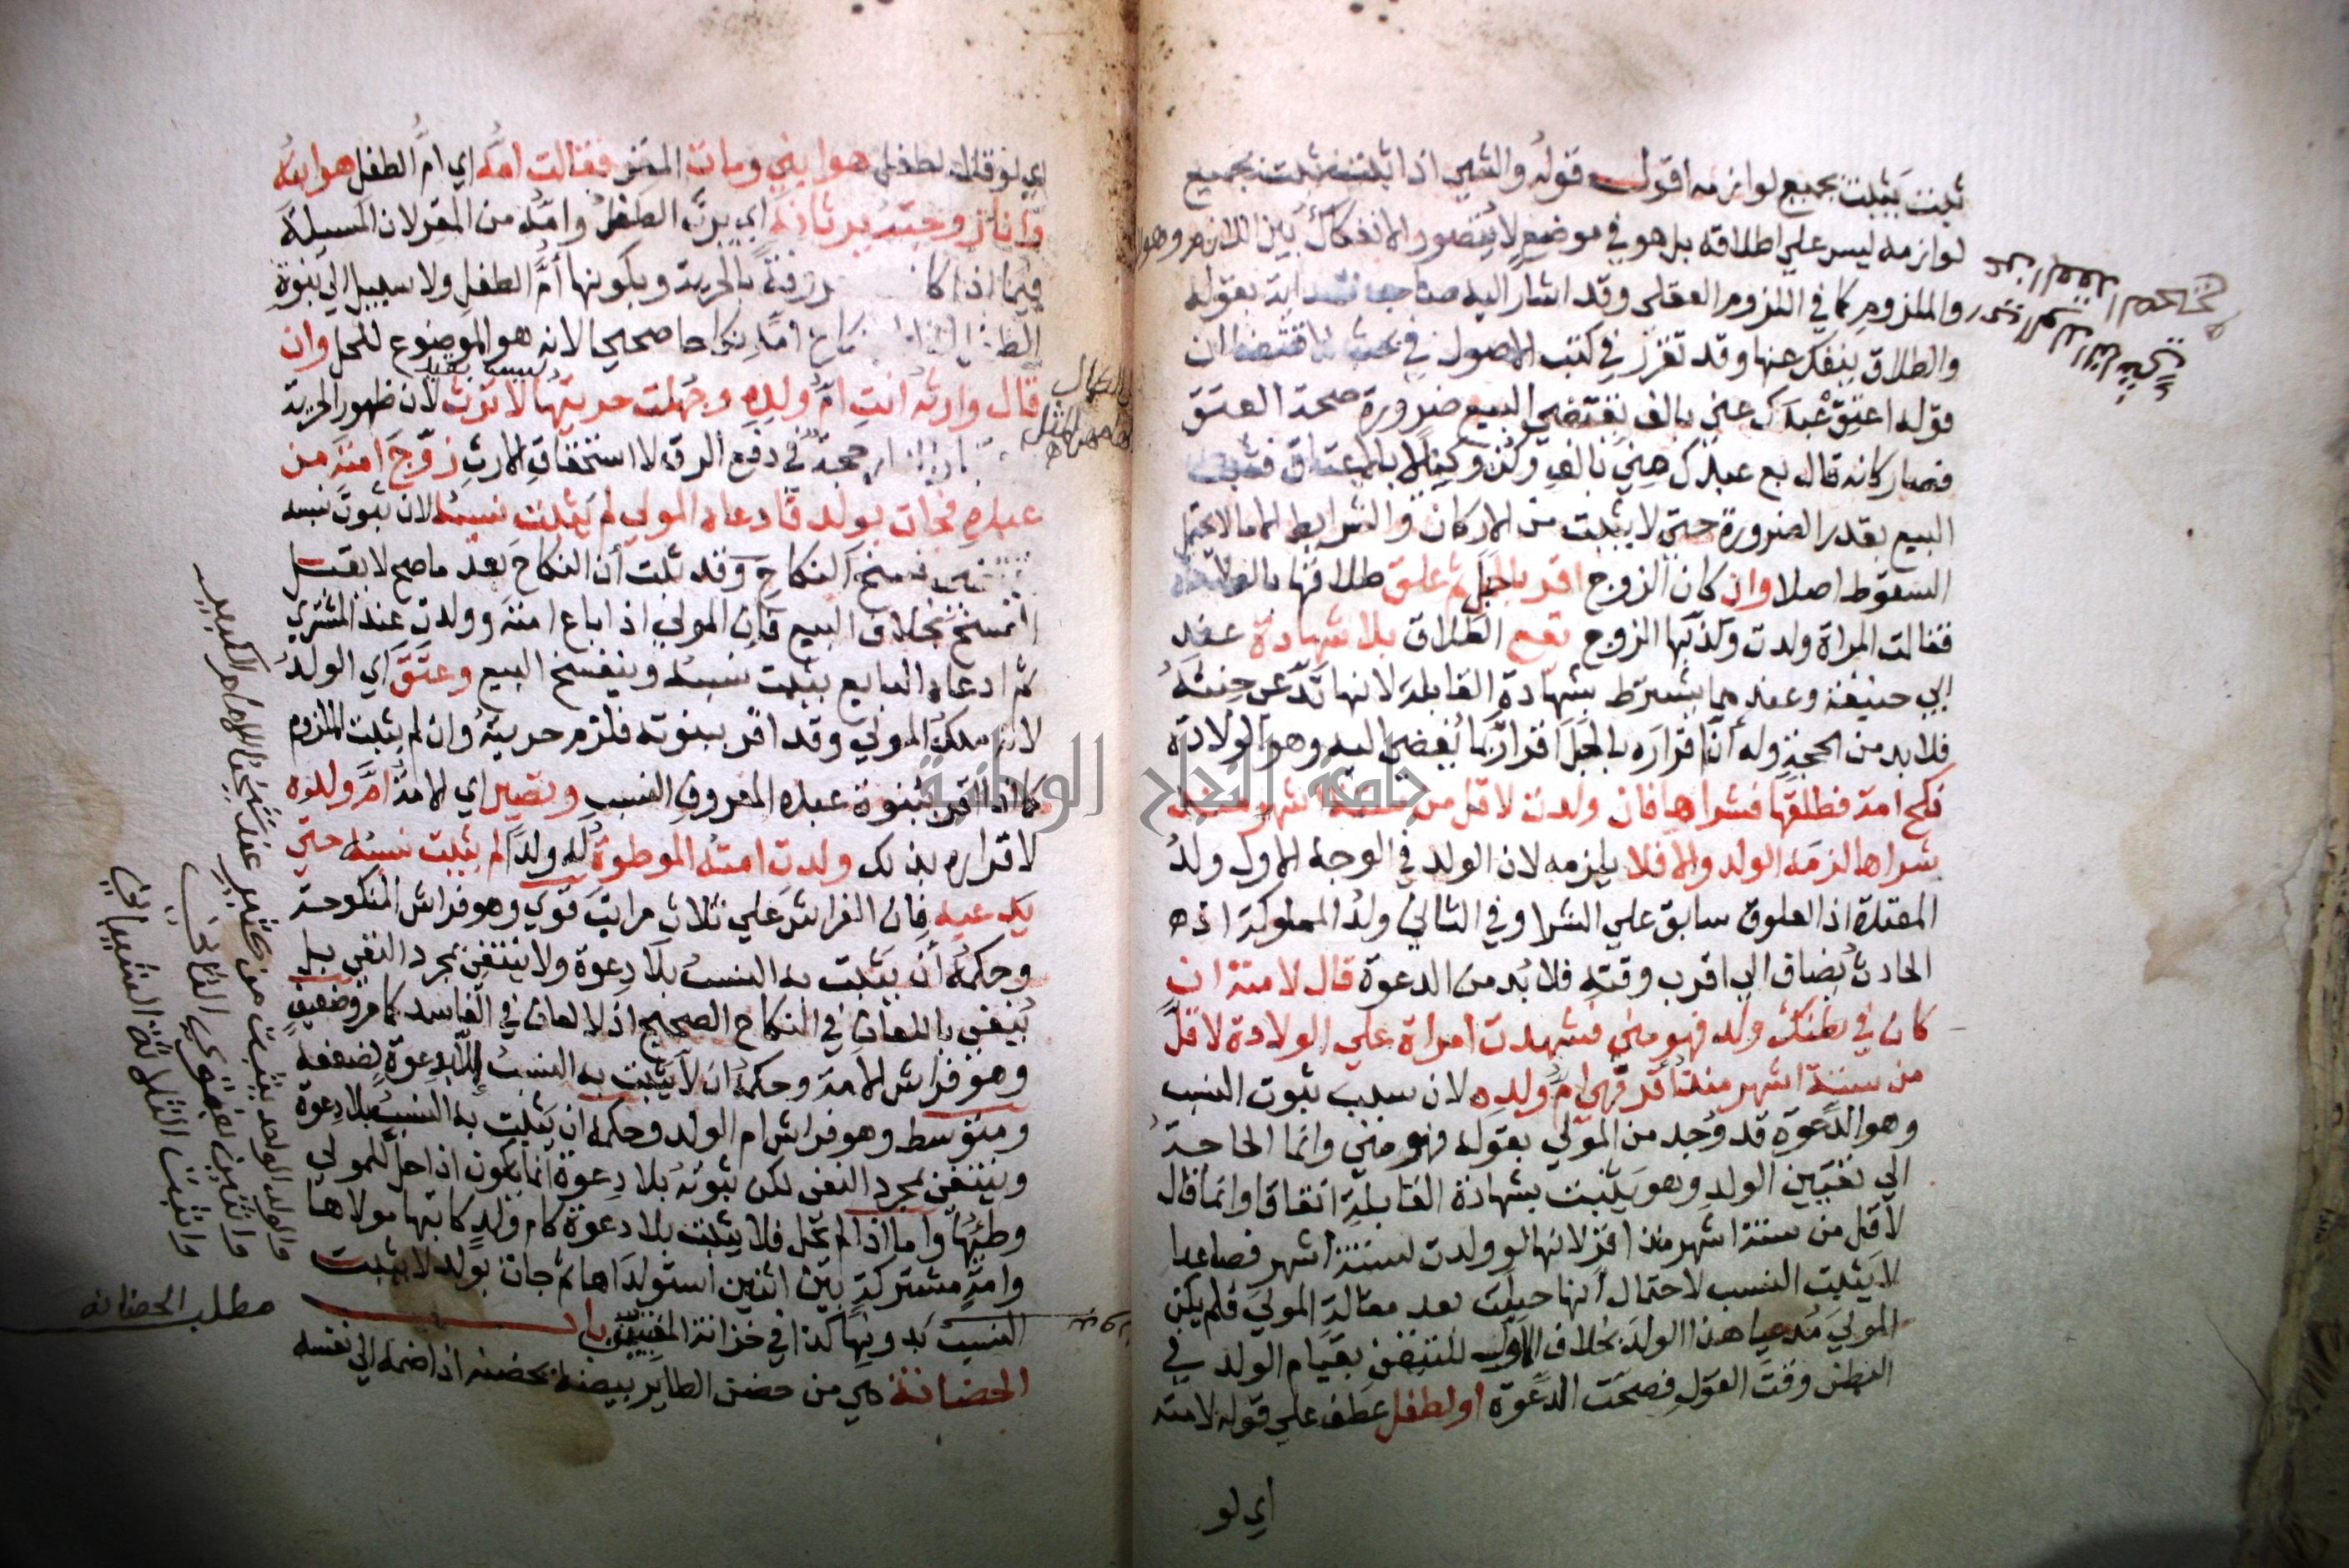 ثبت يثبت بجميع لوازمه اقول قوله والشي اذا ثبت ثبت بجميع
لوازمه ليس علي اطلاقه بل هو في موضع لا يتصور الانفكاك بين اللازم وهو
والملزوم كما في اللزوم العقلي وقد اشار اليه صاحب الهداية بقوله
والطلاق ينفك عنها وقد تقرر في كتب الاصول في بحث الاقتضا ان
قوله اعتق عبدك عني بالف يقتضي البيع ضرورة صحة العتق
فصار كانه قال بع عبدك مني بالف وكن وكيلا بالاعتاق فثبت
البيع بقدر الضرورة حتي لا يثبت من الاركان والشرايط الا ما لا يحتمل
السقوط اصلا وان كان الزوج اقر بالحبل ثم علق طلاقها بالولادة
فقالت المراة ولدت وكذبها الزوج تقع الطلاق بلا شهادة عند
ابي حنيفة وعندهما يشترط شهادة القابلة لانها تدعي حنثه
فلا بد من الحجة وله أن اقراره بالحبل اقرار بما يفضي اليه وهو الولادة
نكح امة فطلقها فشراها فان ولدت لاقل من ستة اشهر منذ
شراها لزمه الولد والا فلا يلزمه لان الولد في الوجه الاول ولد
المعتدة اذ العلوق سابق علي الشرا وفي الثاني ولد المملوكة اذ
الحادث يضاف الي اقرب وقته فلا بد من الدعوة قال لامته ان
كان في بطنك ولد فهو مني فشهدت امراة علي الولادة لاقل
من ستة اشهر منذ أقر فهي ام ولده لان سبب ثبوت النسب
وهو الدعوة قد وجد من المولي بقوله فهو مني وانما الحاجة
الي تعيين الولد وهو يثبت بشهادة القابلة اتفاقا وانما قال
لاقل من ستة اشهر منذ اقر لانها لو ولدت لستة أشهر فصاعدا
لا يثبت النسب لاحتمال أنها حبلت بعد مقالة المولي فلم يكن
المولي مدعيا هذا الولد بخلاف الاول للتيقن بقيام الولد في
البطن وقت القول فصحت الدعوة او لطفل عطف علي قوله لامته
اي لو
اي لو قال لطفل هو ابني ومات المقر فقالت امه اي ام الطفل هو ابنه
وانا زوجته يرثانه اي يرث الطفل وامه من المقر لان المسيلة
فيما اذا كانت معروفة بالحرية وبكونها أم الطفل ولا سبيل الي بنوة
الطفل نكاح امه نكاحا صحيحا لانه هو الموضوع للحل وان
قال وارثه انت ام ولده وجهلت حريتها لا ترث لان ظهور الحرية
حجة في دفع الرق لا استحقاق الارث زوج امته من
عبده فجات بولد فادعاه المولي لم يثبت نسبه لان ثبوت نسبه
فسخ النكاح وقد ثبت أن النكاح بعد ما صح لا يقبل
الفسخ بخلاف البيع فان المولي اذا باع امته وولدت عند المشتري
ثم ادعاه البايع يثبت نسبه وينفسخ البيع وعتق اي الولد
لانه ملك المولي وقد اقر ببنوته فلزم حريته وان لم يثبت الملزوم
كما اذا اقر ببنوة عبده المعروف النسب وتصير اي الامة ام ولده
لاقراره بذلك ولدت امته الموطوة له ولدا لم يثبت نسبه حتي
يدعيه فان الفراش علي ثلاث مراتب قوي وهو فراش المنكوحة
وحكمه أن يثبت به النسب بلا دعوة ولا ينتفي بمجرد النفي بل
ينفي باللعان في النكاح الصحيح اذ لا لعان في الفاسد كما مر وضعيف
وهو فراش الامة وحكمه ان لا يثبت به النسب إلا بدعوة لضعفه
ومتوسط وهو فراش ام الولد وحكمه ان يثبت به النسب بلا دعوة
وينتفي بمجرد النفي لكن ثبوته بلا دعوة انما يكون اذا حل للمولي
وطئها واما اذا لم يحل فلا يثبت بلا دعوة كام ولد كاتبها مولاها
وامة مشتركة بين اثنين استولداها ثم جات بولد لا يثبت
النسب بدونها كذا في خزانة المفتين باب
الحضانة هي من حضن الطاير بيضه يحضنه اذا ضمه الي نفسه
مطلب الحضانه
جامعة النجاح الوطنية